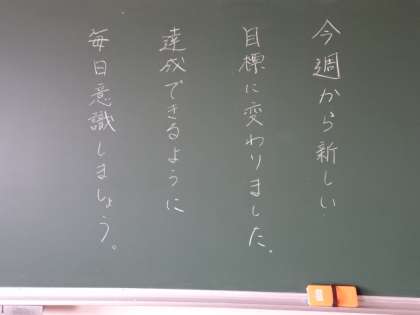 今週から新しい
目標に変わりました。
達成できるように
毎日意識しましょう。